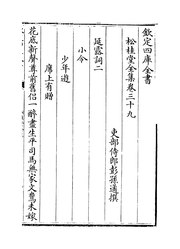 欽定四庫全書
松桂堂全集卷三十九
吏部侍郎彭孫遹撰
延露詞二
小令
少年遊
席上有贈
花底新聲尊前舊侶一醉盡生平司馬無家文鴦未嫁